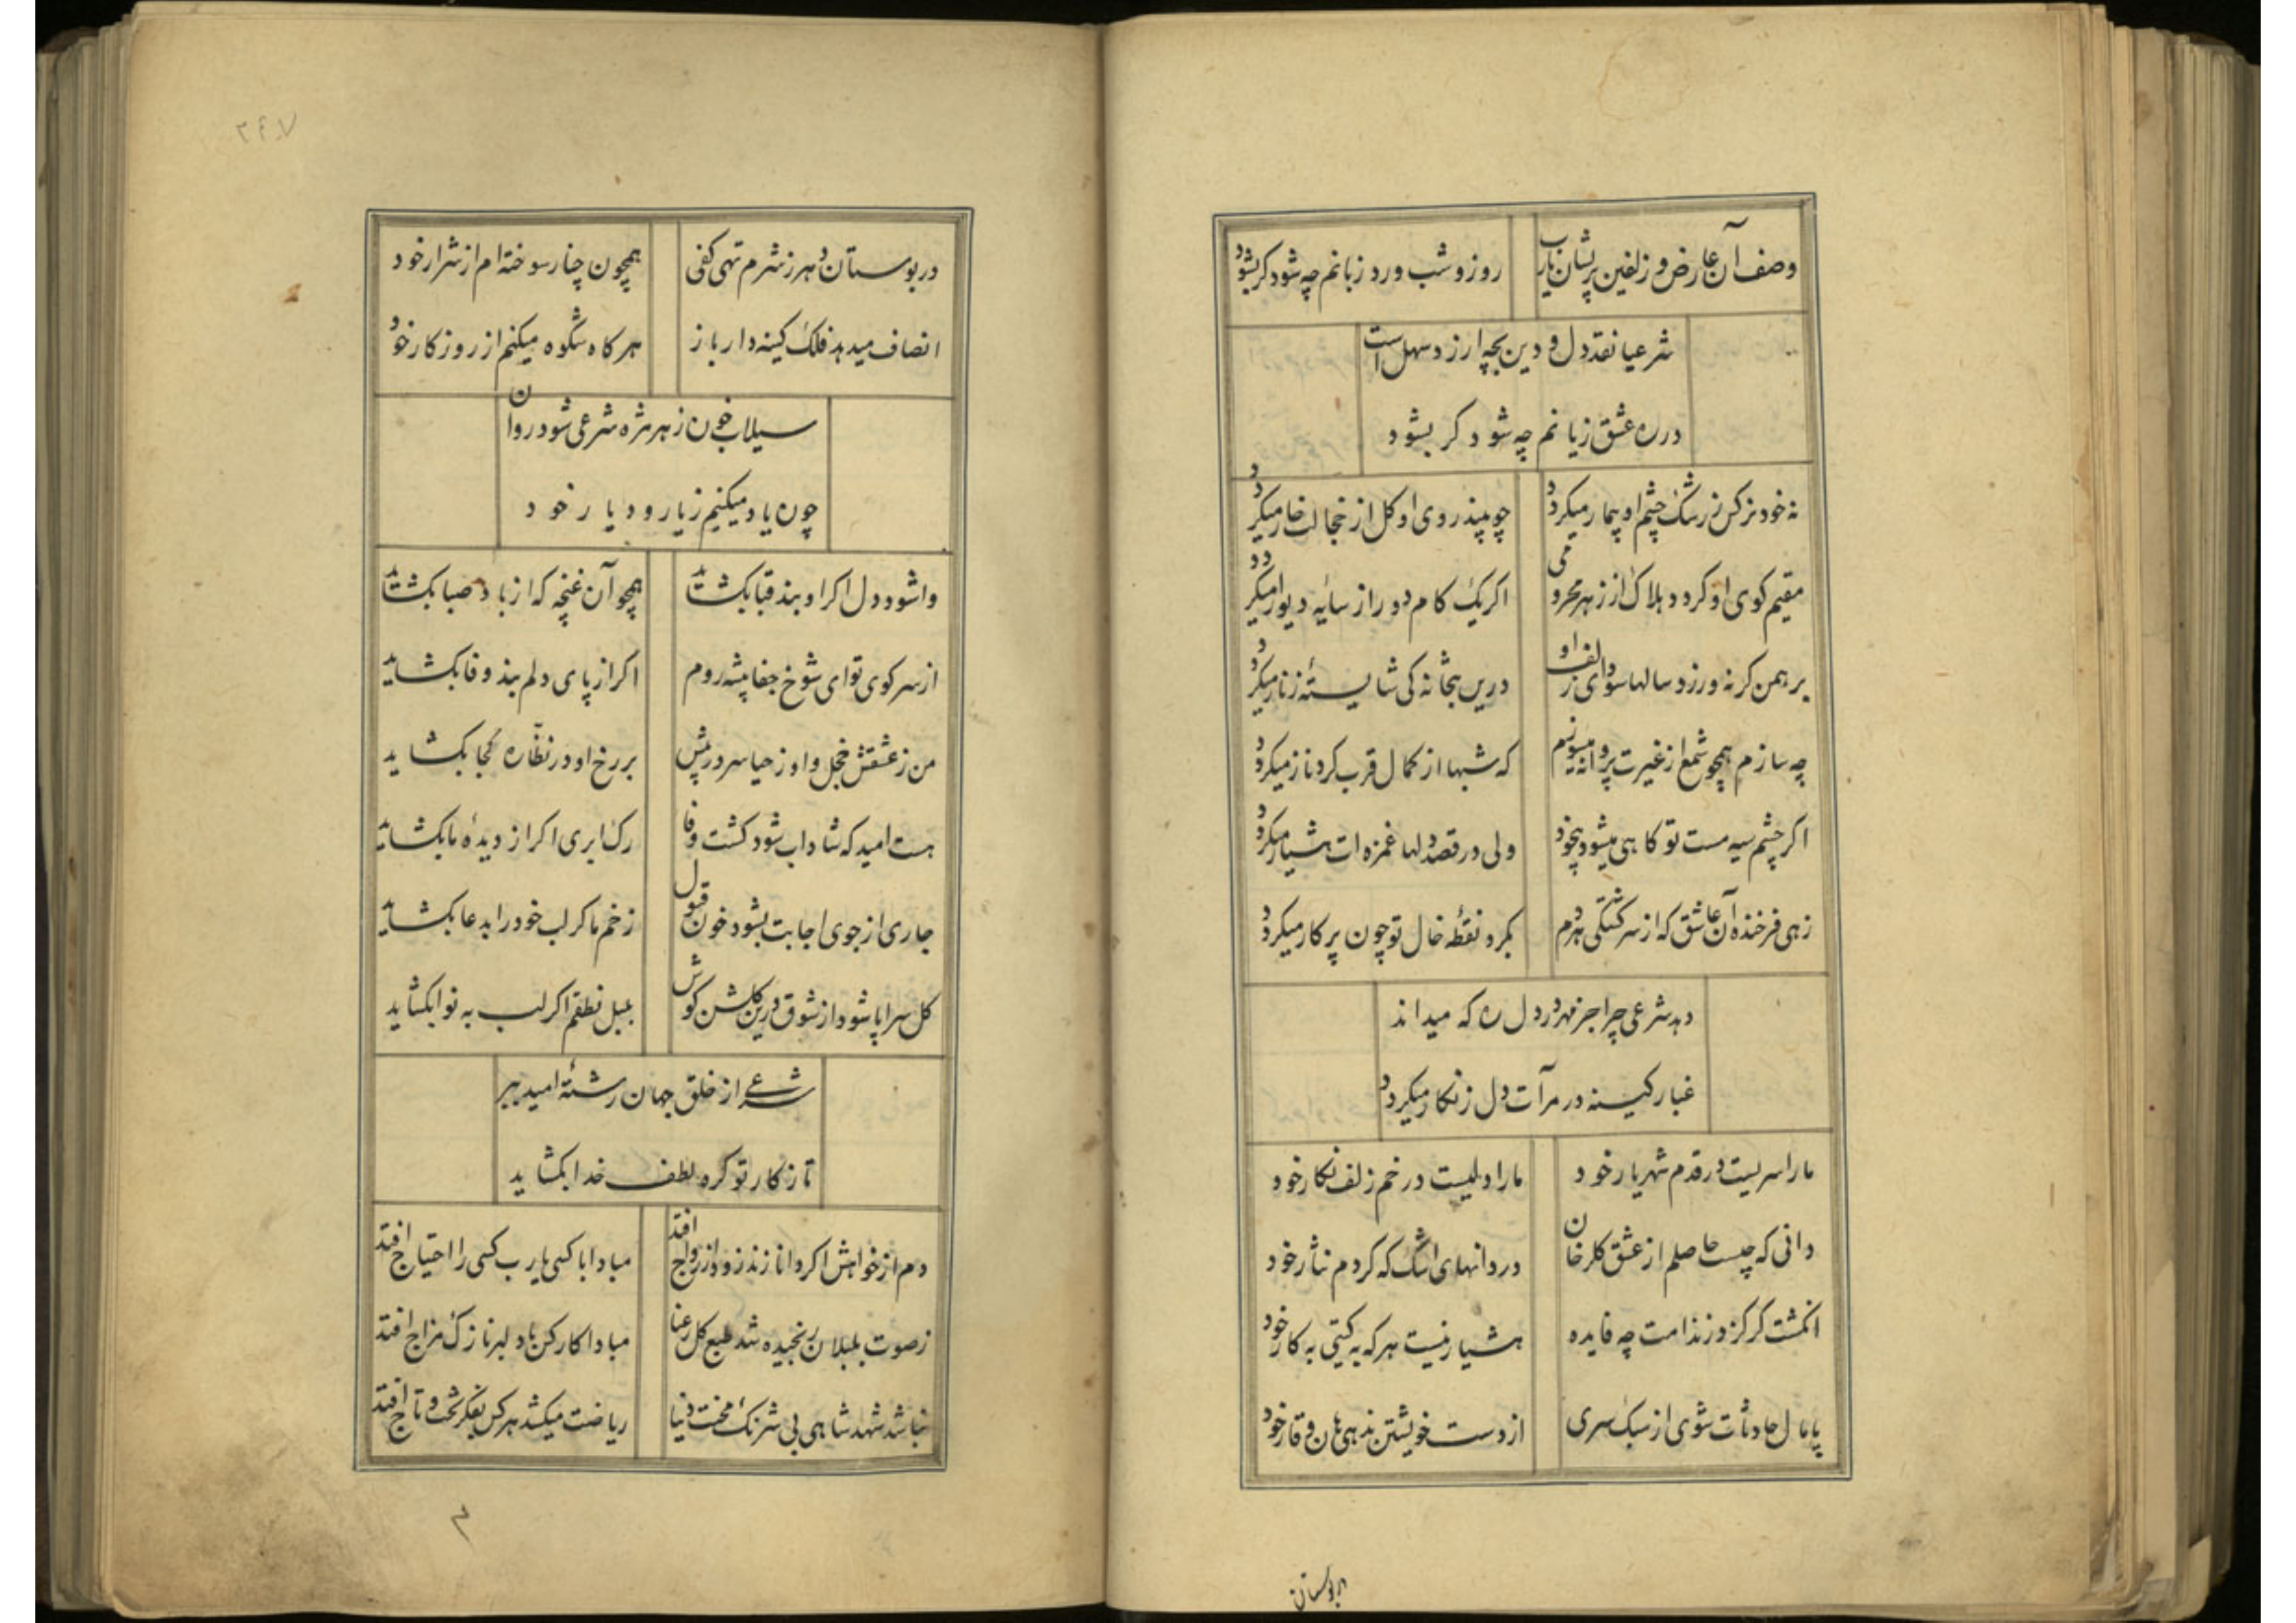 وصف آن عارض و زلفین پریشان یارب
روز و شب ورد زبانم چه شود کر بشود
شرعیا نقد دل و دین بچه ارزد سهل است
در ره عشق زیانم چه شود کر بشود
نه خود نرکس ز رشک چشم او بیمار میکردد
چو بیند روی او کل از خجالت خار میکردد
مقیم کوی او کردد هلاک از زهر محرومی
اکر یک کام دور از سایه دیوار میکردد
برهمن کر نه ورزد سالها سودای زلف او
درین بتخانه کی شایستهٔ زنار میکردد
چه سازم همچو شمع از غیرت پروانه میسوزم
که شبها از کمال قرب کرد ناز میکردد
اکر چشم سیه مست تو کاهی میشود بیخود
ولی در قصد دلها غمزه ات هشیار میکردد
زهی فرخنده آن عاشق که از سرکشتکی هردم
بکرد نقطهٔ خال تو چون پرکار میکردد
دهد شرعی چرا جز مهر در دل ره که میداند
غبار کینه در مرآت دل زنکار میکردد
ما را سریست در قدم شهریار خود
ما را دلیست در خم زلف نکار خود
دانی که چیست حاصلم از عشق کلرخان
دردانهای اشک که کردم نثار خود
انکشت کر کزد ز ندامت چه فایده
هشیار نیست هر که به کیتی به کار خود
پامال حادثات شوی از سبک سری
از دست خویشتن ندهی هان وقار خود
در بوستان
۲۶۷
در بوستان دهر ز شرم تهی کفی
همچون چنار سوخته ام از شرار خود
انصاف میدهد فلک کینه دار باز
هرکاه شکوه میکنم از روزکار خود
سیلاب خون ز هر مژه شرعی شود روان
چون یاد میکنیم ز یار و دیار خود
واشود دل اکر او بند قبا بکشاید
همچو آن غنچه که از باد صبا بکشاید
از سر کوی تو ای شوخ جفا پیشه روم
اکر از پای دلم بند وفا بکشاید
من ز عشقش خجل و او ز حیا سر در پیش
بر رخ او در نظّاره کجا بکشاید
هست امید که شاداب شود کشت وفا
رک ابری اکر از دیدهٔ ما بکشاید
جاری از جوی اجابت بشود خون قبول
زخم ما کر لب خود را بدعا بکشاید
کل سراپا شود از شوق درین کلشن کوش
بلبل نطقم اکر لب به نوا بکشاید
شرعی از خلق جهان رشتهٔ امید ببر
تا ز کار تو کره لطف خدا بکشاید
دم از خواهش اکر دانا زند زود از رواج افتد
مبادا با کسی یارب کسی را احتیاج افتد
ز صوت بلبلان رنجیده شد طبع کل رعنا
مبادا کار کس با دلبر نازک مزاج افتد
نباشد شهد شاهی بی شرنک محنت دنیا
ریاضت میکشد هر کس بفکر تخت و تاج افتد